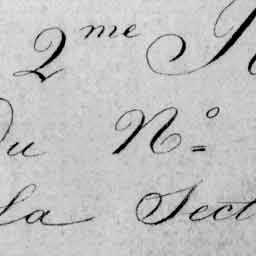 2me
Du No
La Sect